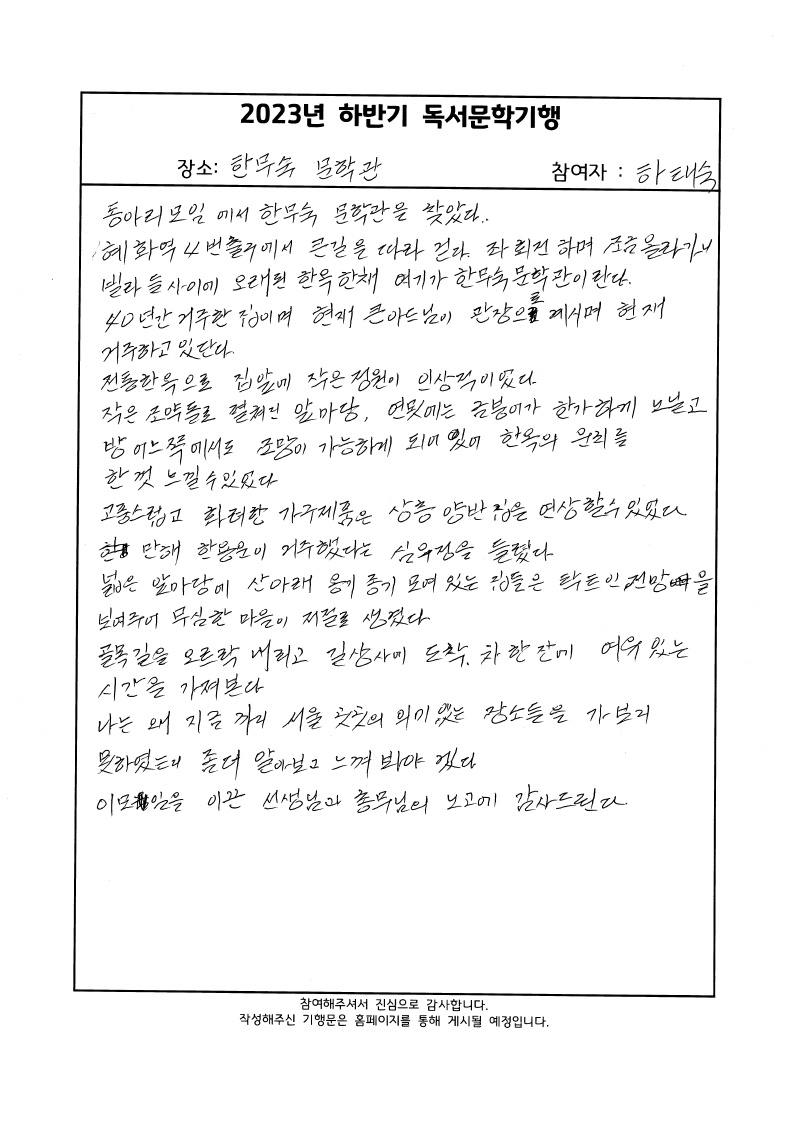 2023년 하반기 독서문학기행
장소: 한무숙 문학관
참여자 : 하태숙
동아리모임 에서 한무숙 문학관을 찾았다..
혜화역 4번출구에서 큰길을 따라 걷다. 좌회전 하며 조금올라가니
빌라들사이에 오래된 한옥한채 여기가 한무숙문학관이란다.
40년간 거주한 집이며 현재 큰아드님이 관장으로 계시며 현재
거주하고있단다.
전통한옥으로 집앞에 작은정원이 인상적이었다
작은 조약돌로 펼쳐진 앞마당, 연못에는 금붕어가 한가하게 노닐고
방 어느쪽에서도 조망이 가능하게 되어있어 한옥의 운치를
한껏 느낄수있었다
고풍스럽고 화려한 가구제품은 상층 양반집을 연상할수있었다
만해 한용운이 거주했다는 심우장을 들렸다
넓은 앞마당에 산아래 옹기종기 모여있는 집들은 탁트인 전망을
보여주어 무심한 마음이 저절로 생겼다
골목길을 오르락 내리고 길상사에 도착, 차한잔에 여유있는
시간을 가져본다
나는 왜 지금 까지 서울 곳곳의 의미있는 장소들을 가보지
못하였는지 좀더 알아보고 느껴봐야 겠다
이모임을 이끈 선생님과 총무님의 노고에 감사드린다.
참여해주셔서 진심으로 감사합니다.
작성해주신 기행문은 홈페이지를 통해 게시될 예정입니다.